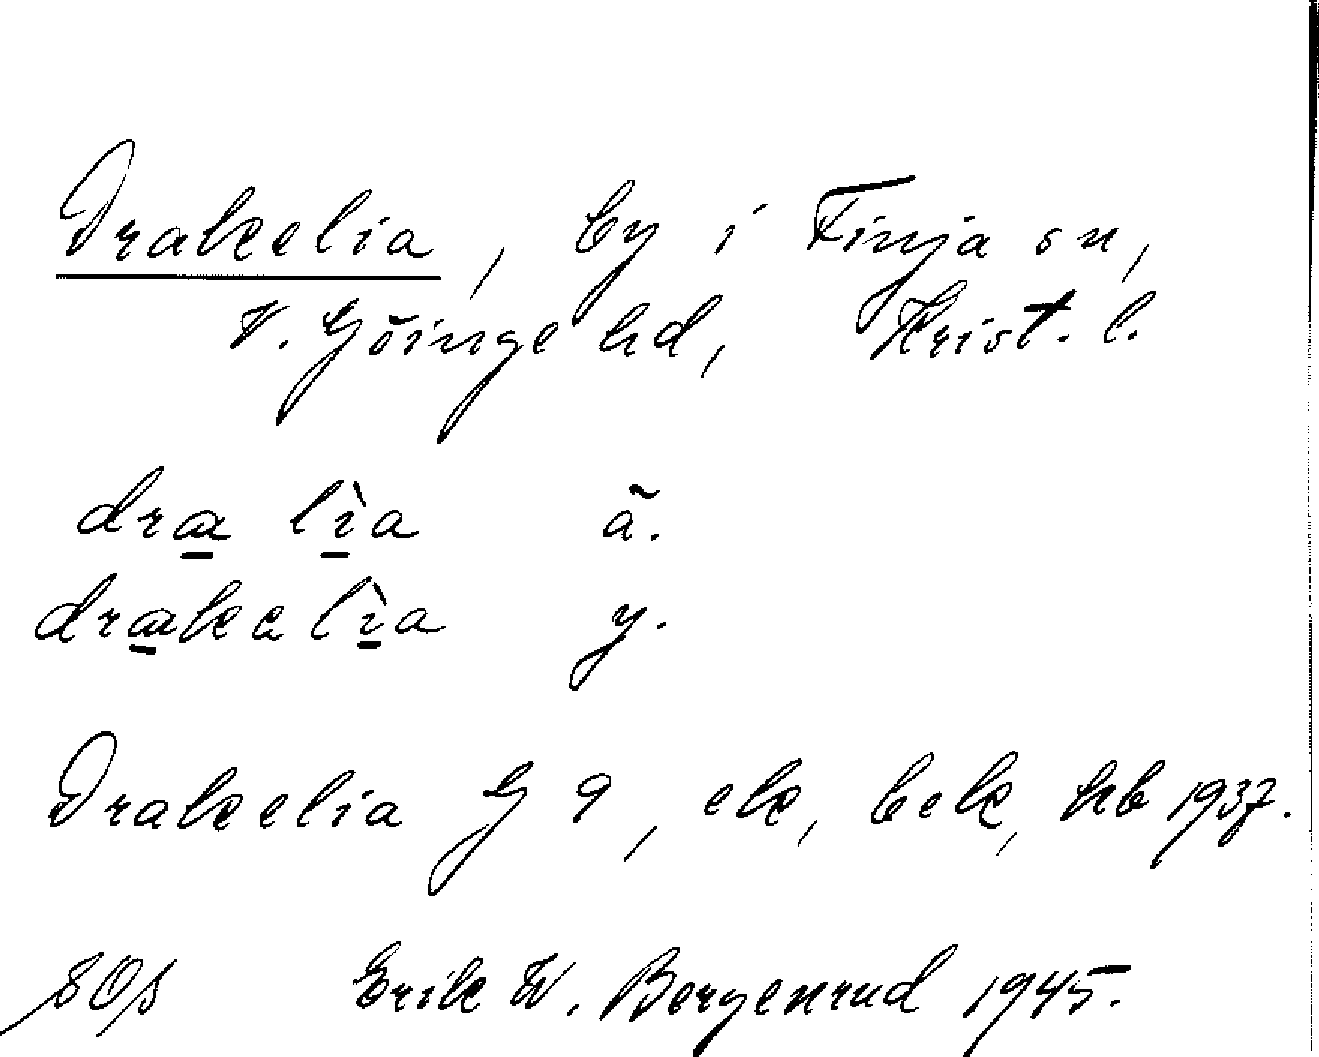 Drakelia, by i Finja sn,
V. Göinge hd, Krist. l.
dra lìa ä.
drakelìa y.
Drakelia G 9, ek, bek, hb 1937.
Erik W. Bergenrud 1945.